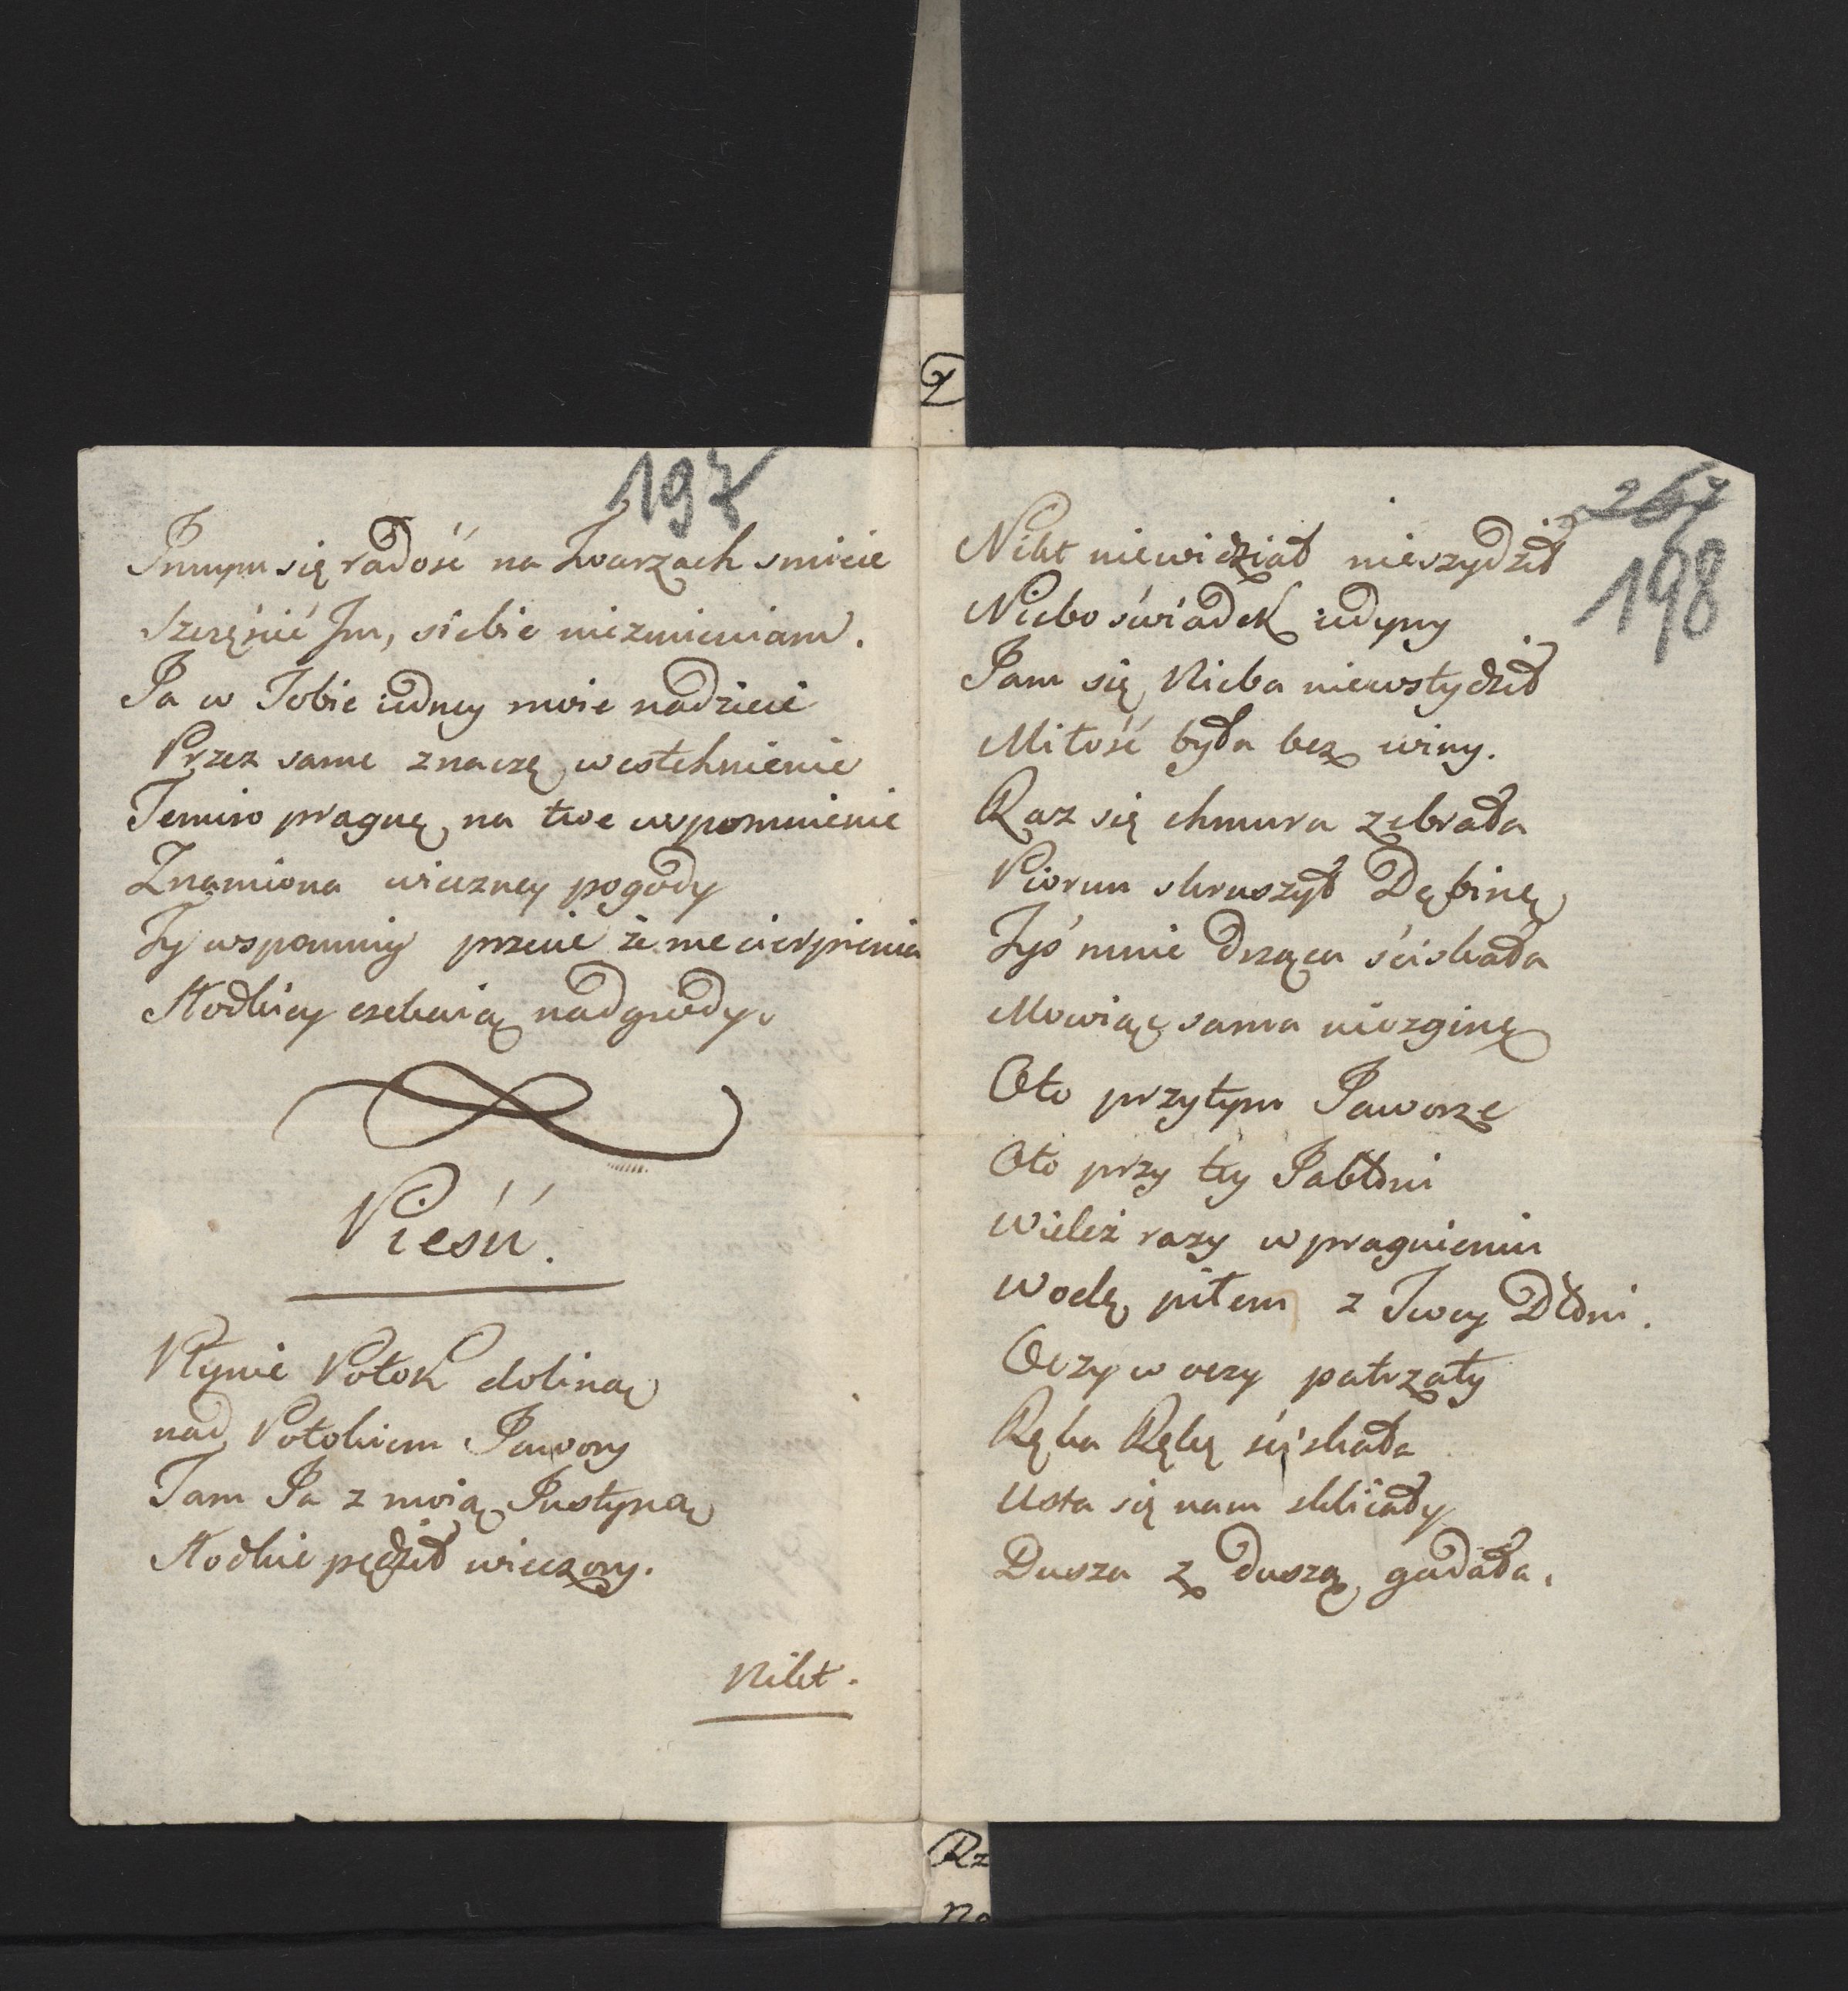 197
Innym się radość na Twarzach smieie
Szczęście Im, siebie niezmieniam.
Ja w Tobie iedney moie nadzieie
Przez same znaczę westchnienie
Temiro pragnę na twe wspomnienie
Znamiona wieczney pogody
Ty wspomniy przecie że me cierpienia
Słodkiey czekaią nadgrody.
Pieśń.
Płynie Potok doliną
nad Potokiem Jawory
Tam Ja z moią Justyną
Słodkie pędził wieczory.
Nikt.
267
198
Nikt niewidział nieszydził
Niebo świadek iedyny
Jam się Nieba niewstydził
Miłość była bez winy.
Raz się chmura zebrała
Piorun skruszył Dębinę
Tyś mnie drząca ściskała
Mowiąc sama niezginę
Oto przytym Jaworze
Oto przy tey Jabłoni
Wieleż razy w pragnieniu
Wodę piłem z Twey Dłoni.
Oczy w oczy patrzały
Ręka Rękę ściskała
Usta się nam skliiały
Dusza z duszą gadała.
Rz